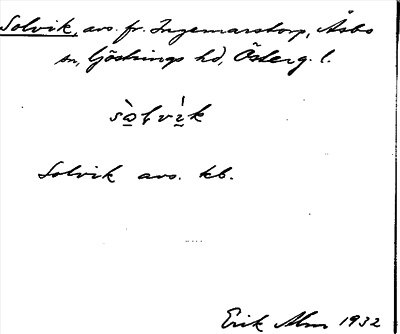 Solvik, avs. fr. Ingemarstorp, Åsbo
sn, Göstrings hd, Österg. l.
sòlvìk
Solvik avs. kb.
Erik Alm 1932